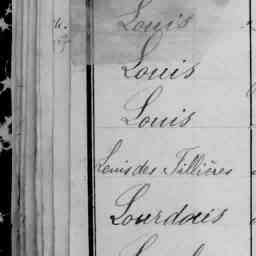 Louis
Louis
Louis
Louis des Tillières
Lourdais